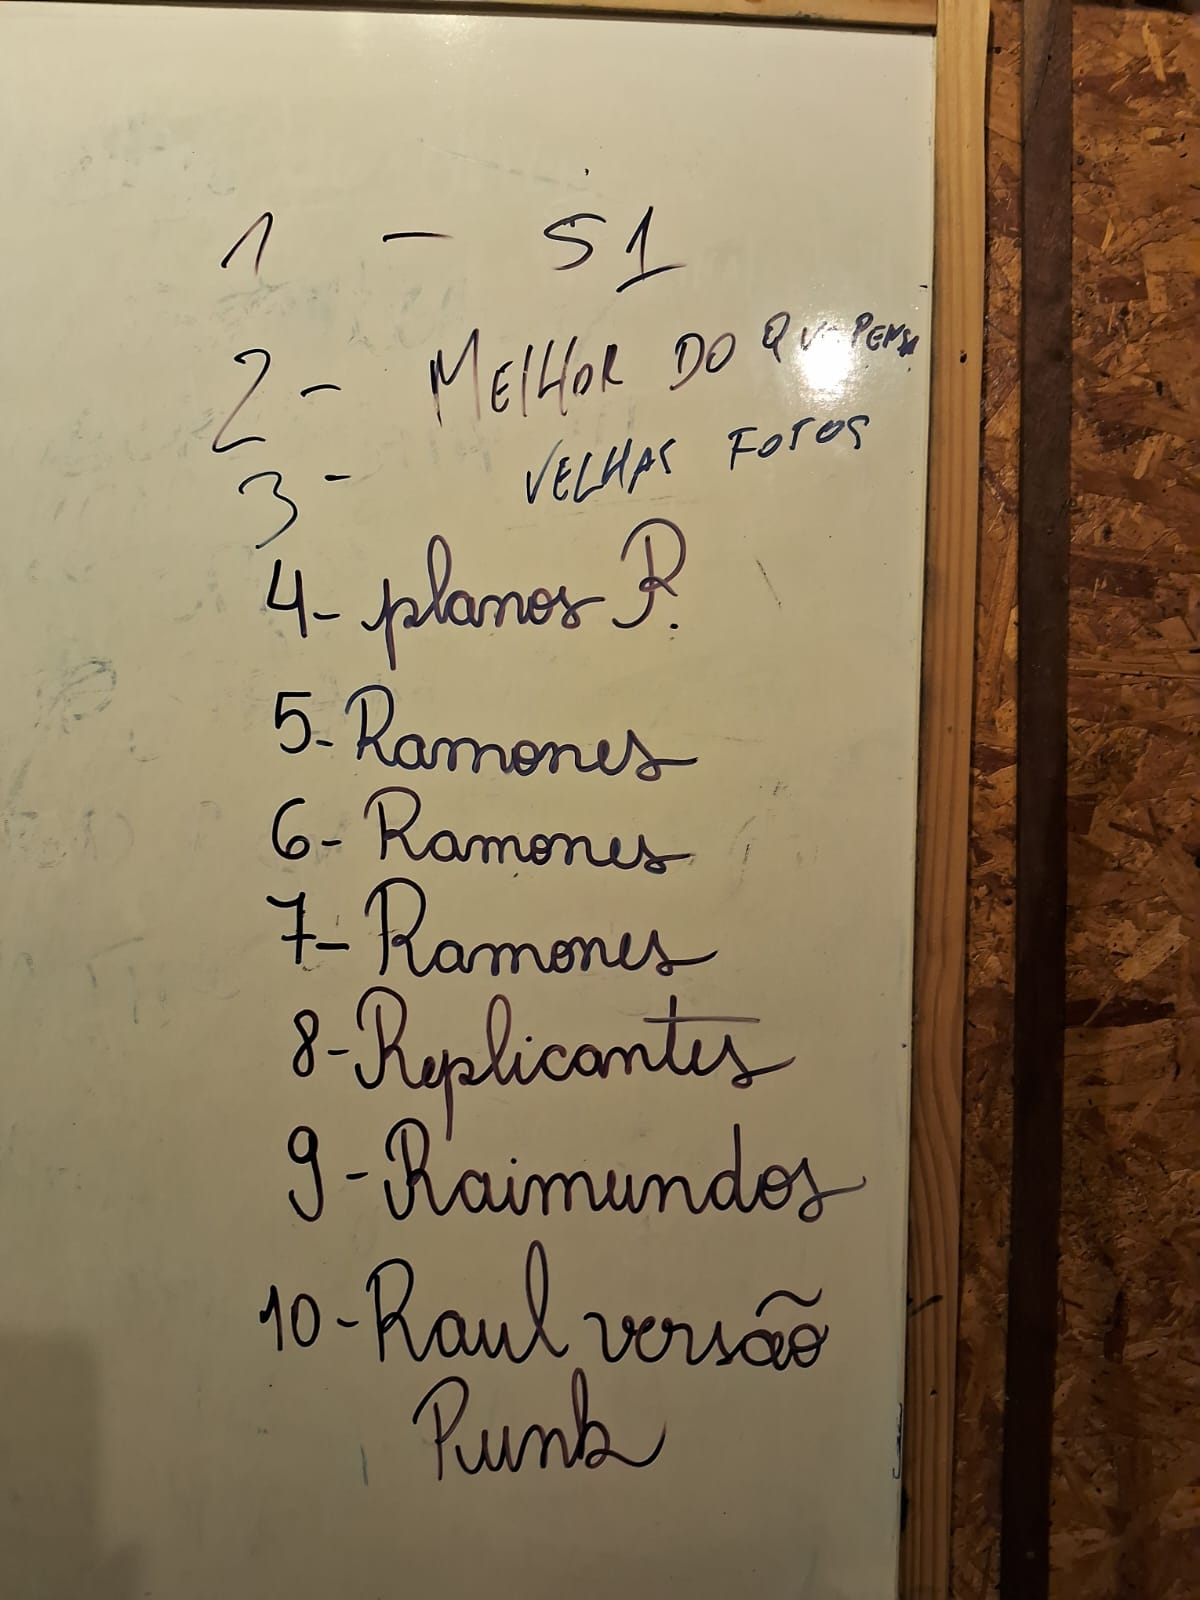 1 - 51
2 - MElHOR DO QUE PENSA
3 - VELHAS FOTOS
4- planos R.
5- Ramones
6- Ramones
7- Ramones
8- Replicantes
9- Raimundos
10- Raul versão
Punk